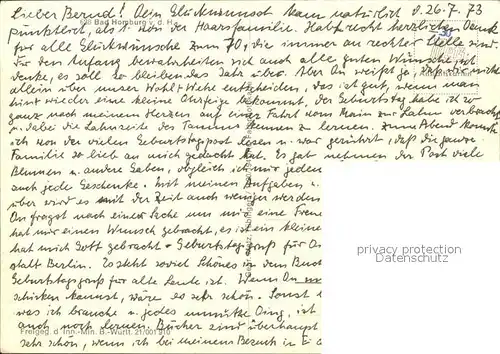 Lieber Bernd! Dein Glückwunsch kam natürlich d. 26-7-73
638 Bad Homburg v. d. H.
pünktlich, als 1. von der Haarsfamilie. Hab recht herzlichen Dank
für alle Glückwünsche zum 70, die immer an rechter Stelle sind.
Für den Anfang bewahrheiten sich auch alle guten Wünsche, ich
denke, es soll so bleiben das Jahr über. Aber Du weißt ja, daß wir nicht
allein über unser Wohl + Wehe entscheiden, das ist gut, wenn man
hin + wieder eine kleine Ohrfeige bekommt. Den Geburtstag habe ich so
ganz nach meinem Herzen auf einer Fahrt vom Main zur Lahn verbracht
u. dabei die Lahnseite des Taunus kennen zu lernen. Zum Abend konnte
ich von der vielen Geburtstagspost lesen u. war gerührt, daß die ganze
Familie so lieb an mich gedacht hat. Es gab neben der Post viele
Blumen u. andere Gaben, obgleich ich mir jeden
auch jede Geschenke. Mit meinen Aufgaben u.
über wird es mit der Zeit auch weniger werden
Du fragst nach einer Sache um mir eine Freude
hat mir einen Wunsch gebracht, es ist ein kleine
hat mich Gott gebracht + Geburtstagsgruß für
stalt Berlin. Es steht soviel Schönes in dem Buch
Geburtstagsgruß für alte Leute ist. Wenn Du
schicken kannst, wäre es sehr schön. Sonst
was ich brauche u. jedes unnütze Ding, ist
auch noch lernen. Bücher sind überhaupt
sehr schön, wenn ich bei meinem Besuch in
Freigeg. d. Inn.-Min. B.-Württ. 21/001910
privacy protection
AnsichtskartenVersand.com